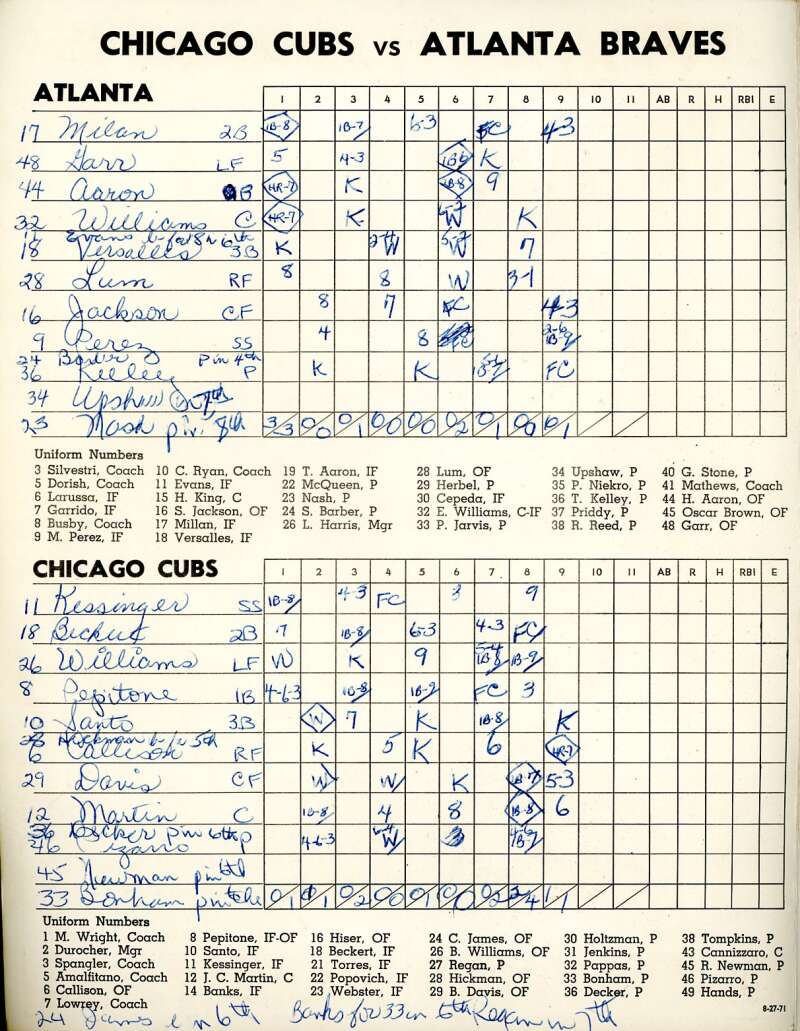 CHICAGO CUBS vs ATLANTA BRAVES
ATLANTA 1 2 3 4 5 6 7 8 9 10 11 AB R H RBI E
17 Milan 2B 1B-8 1B-7 6-3 FC 4-3
48 Garr LF 5 4-3 1B6 K
44 Aaron B HR-7 K 1B-8 9
32 Williams C HR-7 K W K
Evans 6th
18 Versalles 3B K W W 7
28 Lum RF 8 8 W 3-1
16 Jackson CF 8 7 FC 4-3
9 Perez SS 4 8 FC 1B-9
24 Barber P in 4th
36 Kelley P K K FC
34 Upshaw
23 Nash p in 8th 3/3 0/0 0/1 0/0 0/0 0/2 0/1 0/0 0/1
Uniform Numbers
3 Silvestri, Coach 10 C. Ryan, Coach 19 T. Aaron, IF 28 Lum, OF 34 Upshaw, P 40 G. Stone, P
5 Dorish, Coach 11 Evans, IF 22 McQueen, P 29 Herbel, P 35 P. Niekro, P 41 Mathews, Coach
6 Larussa, IF 15 H. King, C 23 Nash, P 30 Cepeda, IF 36 T. Kelley, P 44 H. Aaron, OF
7 Garrido, IF 16 S. Jackson, OF 24 S. Barber, P 32 E. Williams, C-IF 37 Priddy, P 45 Oscar Brown, OF
8 Busby, Coach 17 Millan, IF 26 L. Harris, Mgr 33 P. Jarvis, P 38 R. Reed, P 48 Garr, OF
9 M. Perez, IF 18 Versalles, IF
CHICAGO CUBS 1 2 3 4 5 6 7 8 9 10 11 AB R H RBI E
11 Kessinger SS 1B-8 4-3 FC 3 9
18 Beckert 2B 7 1B-8 6-3 4-3 FC
26 Williams LF W K 9 1B8 1B-9
8 Pepitone 1B 4-6-3 1B-8 1B-9 FC 3
10 Santo 3B W 7 K 1B-8 K
28 Hickman 5th
6 Callison RF K 5 K 6 HR-7
29 Davis CF W W K 1B-7 5-3
12 Martin C 1B-8 4 8 1B-8 6
36 Decker P in 6th
46 P 4-6-3 W 3 1B-9
45 Newman
33 Bonham 0/1 0/1 0/2 0/0 0/1 0/0 1/1
Uniform Numbers
1 M. Wright, Coach 8 Pepitone, IF-OF 16 Hiser, OF 24 C. James, OF 30 Holtzman, P 38 Tompkins, P
2 Durocher, Mgr 10 Santo, IF 18 Beckert, IF 26 B. Williams, OF 31 Jenkins, P 43 Cannizzaro, C
3 Spangler, Coach 11 Kessinger, IF 21 Torres, IF 27 Regan, P 32 Pappas, P 45 R. Newman, P
5 Amalfitano, Coach 12 J. C. Martin, C 22 Popovich, IF 28 Hickman, OF 33 Bonham, P 46 Pizarro, P
6 Callison, OF 14 Banks, IF 23 Webster, IF 29 B. Davis, OF 36 Decker, P 49 Hands, P
7 Lowrey, Coach
24 James in 6th Banks for 33 in 6th Regan in 7th
8-27-71